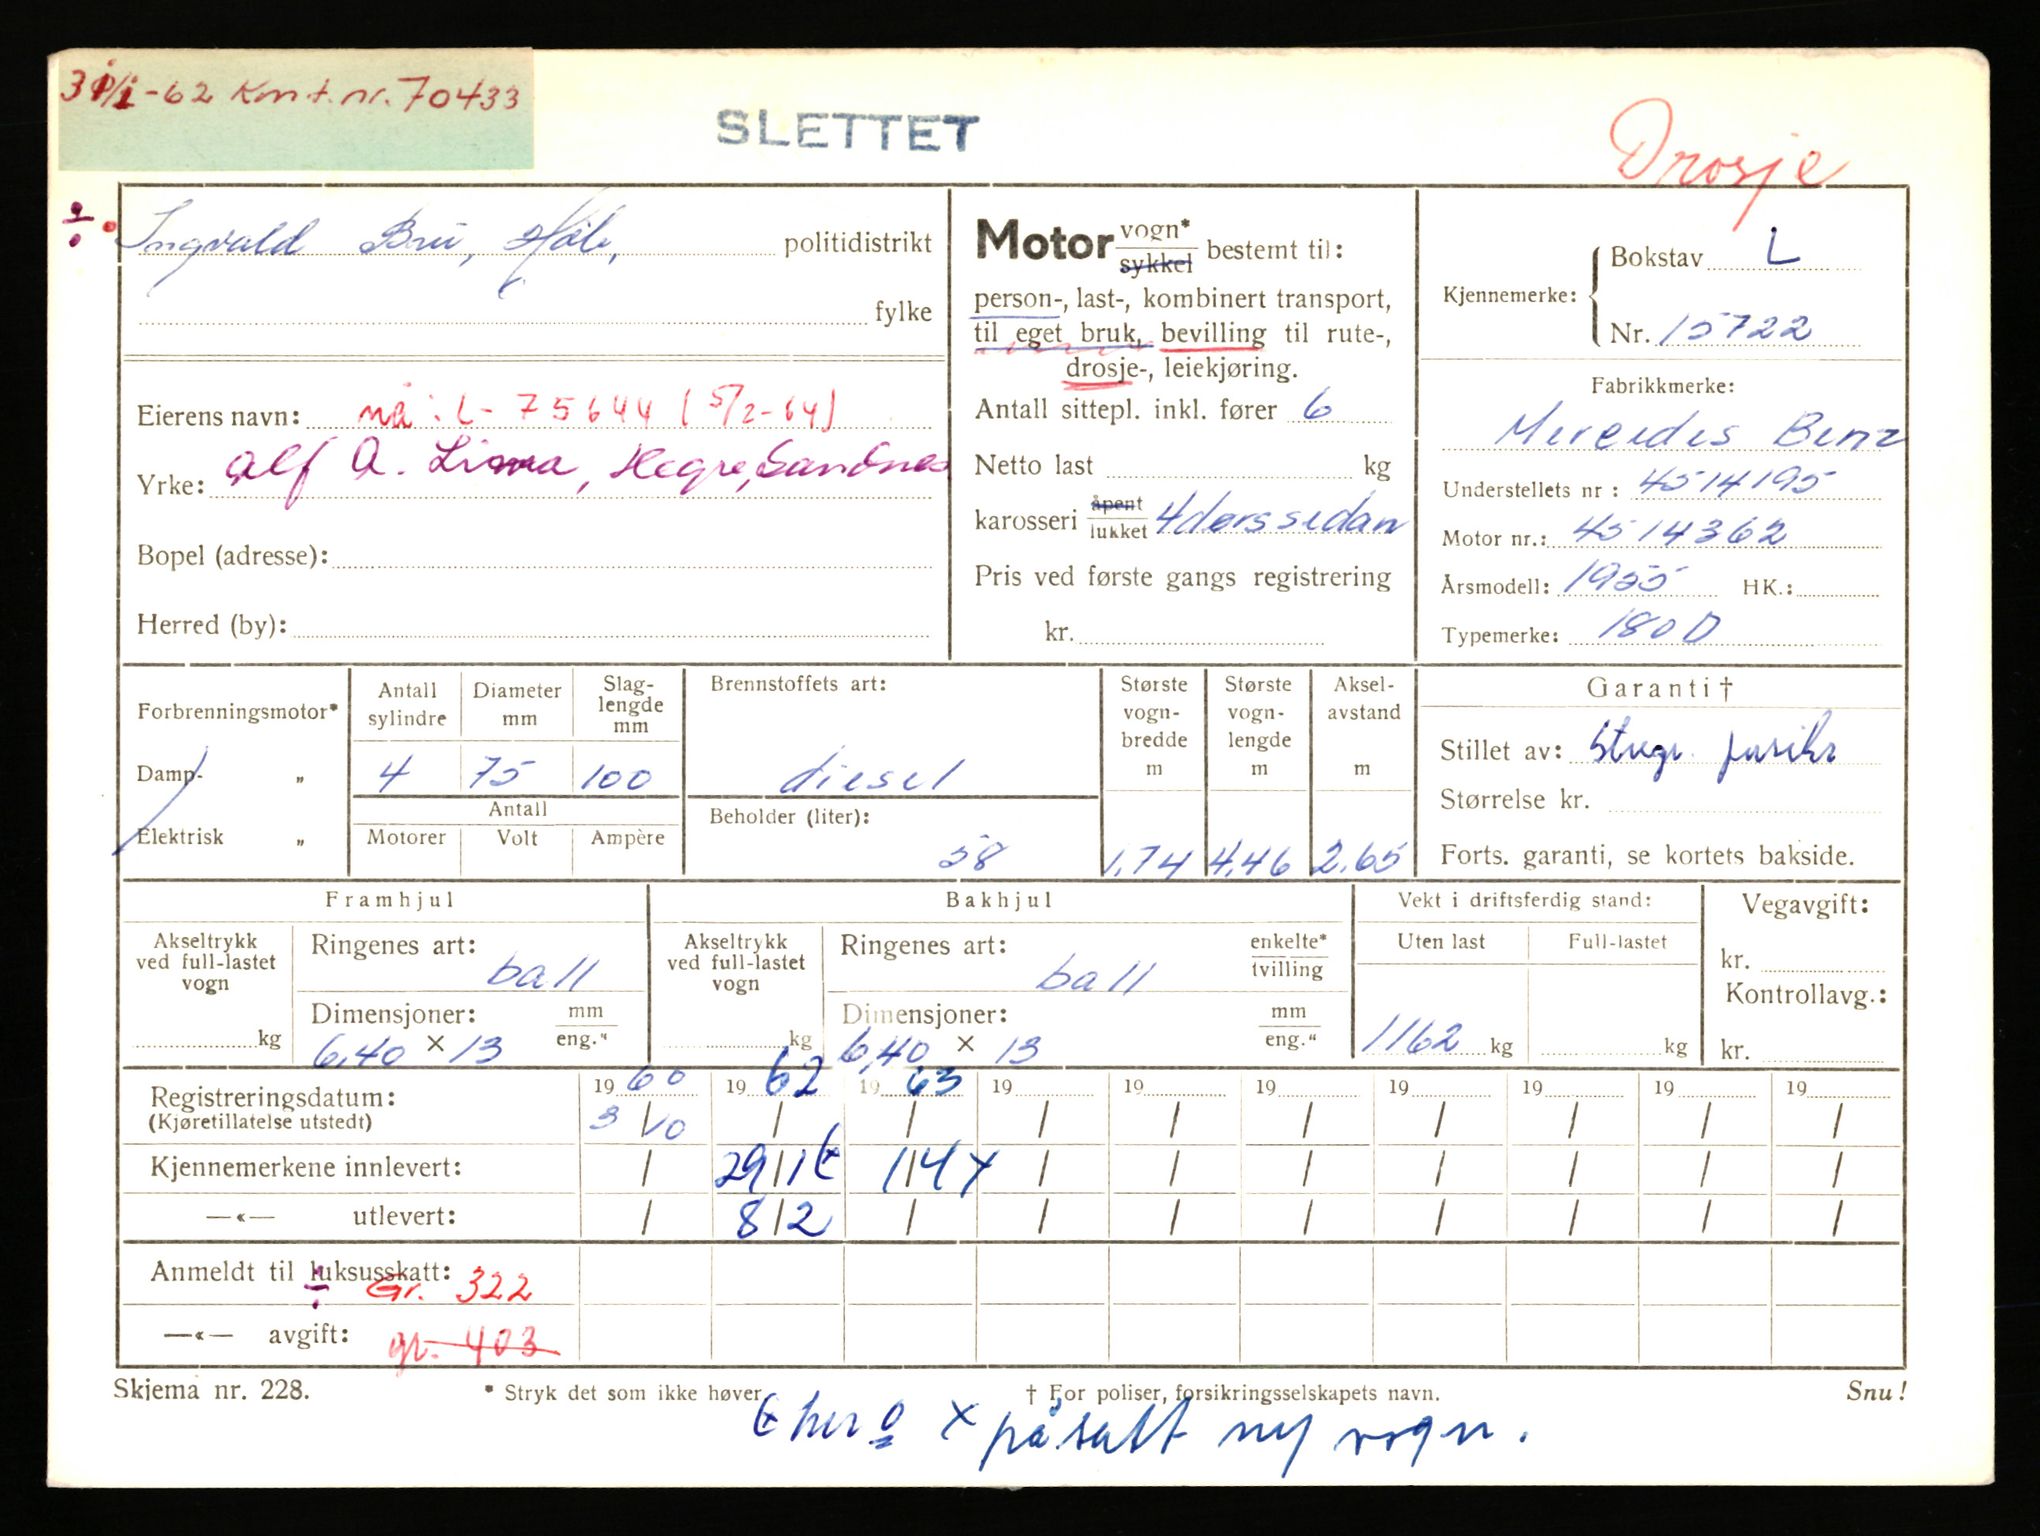 31/1-62 Kont.nr. 70433
SLETTET
Drosje
Ingvald Bru, Høle, politidistrikt
fylke
Eierens navn: nå: L- 75644 (5/2-64)
Yrke: Alf A. Lima, Hegre, Sandnes
Bopel (adresse):
Herred (by):
Motor vogn* sykkel bestemt til:
person-, last-, kombinert transport,
til eget bruk, bevilling til rute-,
drosje-, leiekjøring.
Antall sittepl. inkl. fører 6
Netto last kg
karosseri åpent lukket 4dørs sedan
Pris ved første gangs registrering
kr.
Kjennemerke: Bokstav L
Nr. 15722
Fabrikkmerke:
Mercedes Benz
Understellets nr : 4514195
Motor nr.: 4514362
Årsmodell: 1955 HK.:
Typemerke: 180 D
Forbrenningsmotor*
Damp- „
Elektrisk „
Antall sylindre Diameter mm Slag- lengde mm
4 75 100
Antall
Motorer Volt Ampère
Brennstoffets art:
diesel
Beholder (liter):
58
Største vogn- bredde m
1,74
Største vogn- lengde m
4,46
Aksel- avstand m
2,65
Garanti †
Stillet av:
Størrelse kr.
Forts. garanti, se kortets bakside.
Framhjul
Akseltrykk ved full-lastet vogn kg
Ringenes art: ball
Dimensjoner: mm eng."
6,40 × 13
Bakhjul
Akseltrykk ved full-lastet vogn kg
Ringenes art: enkelte* tvilling
ball
Dimensjoner: mm eng."
6,40 × 13
Vekt i driftsferdig stand:
Uten last Full-lastet
1162 kg kg
Vegavgift:
kr.
Kontrollavg.:
kr.
Registreringsdatum: 1960 1962 1963 19 19 19 19 19 19 19
(Kjøretillatelse utstedt) 3/10 / / / / / / / / /
Kjennemerkene innlevert: / 29/1 1/4 x / / / / / / /
—«— utlevert: / 8/2 / / / / / / / /
Anmeldt til luksusskatt: Gr. 322
—«— avgift: gr. 403
Skjema nr. 228.
* Stryk det som ikke høver.
† For poliser, forsikringsselskapets navn.
Snu!
x påsatt ny vogn.